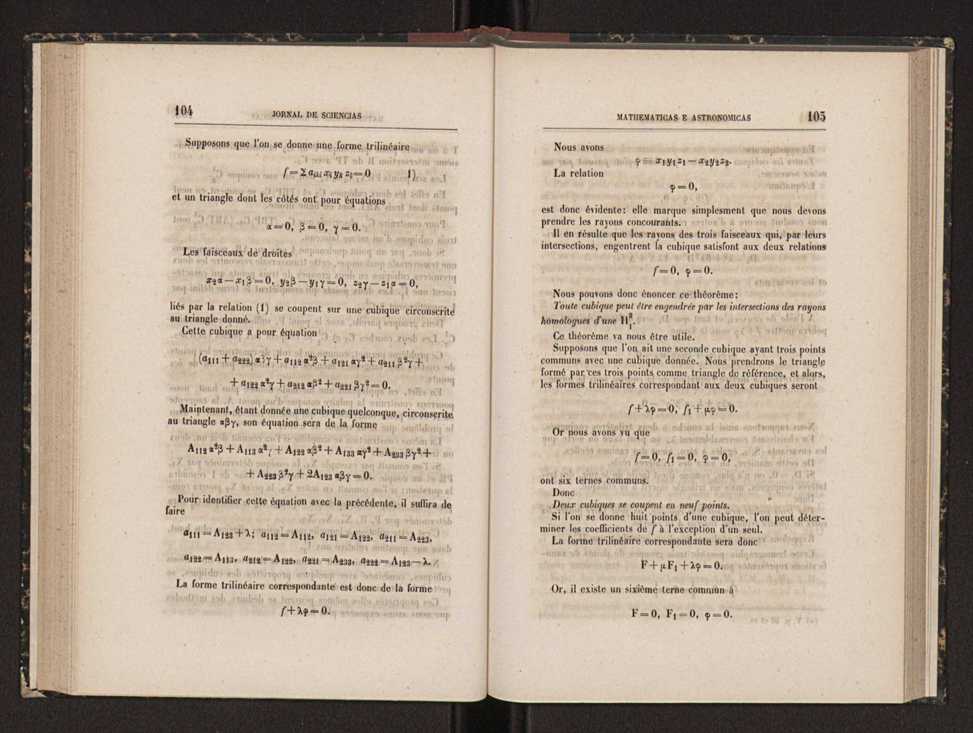 104
JORNAL DE SCIENCIAS
Supposons que l'on se donne une forme trilinéaire
f = Σ aᵢₖₗ xᵢ yₖ zₗ = 0 1)
et un triangle dont les côtés ont pour équations
α = 0, β = 0, γ = 0.
Les faisceaux de droites
x₂α — x₁β = 0, y₂β — y₁γ = 0, z₂γ — z₁α = 0,
liés par la relation (1) se coupent sur une cubique circonscrite
au triangle donné.
Cette cubique a pour équation
(a₁₁₁ + a₂₂₂) αβγ + a₁₁₂ α²β + a₁₂₁ αγ² + a₂₁₁ β²γ +
+ a₁₂₂ α²γ + a₂₁₂ αβ² + a₂₂₁ βγ² = 0.
Maintenant, étant donnée une cubique quelconque, circonscrite
au triangle αβγ, son équation sera de la forme
A₁₁₂ α²β + A₁₁₃ α²γ + A₁₂₂ αβ² + A₁₃₃ αγ² + A₂₃₃ βγ² +
+ A₂₂₃ β²γ + 2A₁₂₃ αβγ = 0.
Pour identifier cette équation avec la précédente, il suffira de
faire
a₁₁₁ = A₁₂₃ + λ; a₁₁₂ = A₁₁₂, a₁₂₁ = A₁₂₂, a₂₁₁ = A₂₂₃,
a₁₂₂ = A₁₁₃, a₂₁₂ = A₁₂₂, a₂₂₁ = A₂₃₃, a₂₂₂ = A₁₂₃ — λ.
La forme trilinéaire correspondante est donc de la forme
f + λφ = 0.
MATHEMATICAS E ASTRONOMICAS
105
Nous avons
φ = x₁y₁z₁ — x₂y₂z₂.
La relation
φ = 0,
est donc évidente: elle marque simplesment que nous devons
prendre les rayons concourants.
Il en résulte que les rayons des trois faisceaux qui, par leurs
intersections, engentrent la cubique satisfont aux deux relations
f = 0, φ = 0.
Nous pouvons donc énoncer ce théorème:
Toute cubique peut être engendrée par les intersections des rayons
homologues d'une H³₁.
Ce théorème va nous être utile.
Supposons que l'on ait une seconde cubique ayant trois points
communs avec une cubique donnée. Nous prendrons le triangle
formé par ces trois points comme triangle de référence, et alors,
les formes trilinéaires correspondant aux deux cubiques seront
f + λφ = 0, f₁ + μφ = 0.
Or nous avons vu que
f = 0, f₁ = 0, φ = 0,
ont six ternes communs.
Donc
Deux cubiques se coupent en neuf points.
Si l'on se donne huit points d'une cubique, l'on peut déter-
miner les coefficients de f à l'exception d'un seul.
La forme trilinéaire correspondante sera donc
F + μF₁ + λφ = 0.
Or, il existe un sixième terne commun à
F = 0, F₁ = 0, φ = 0.